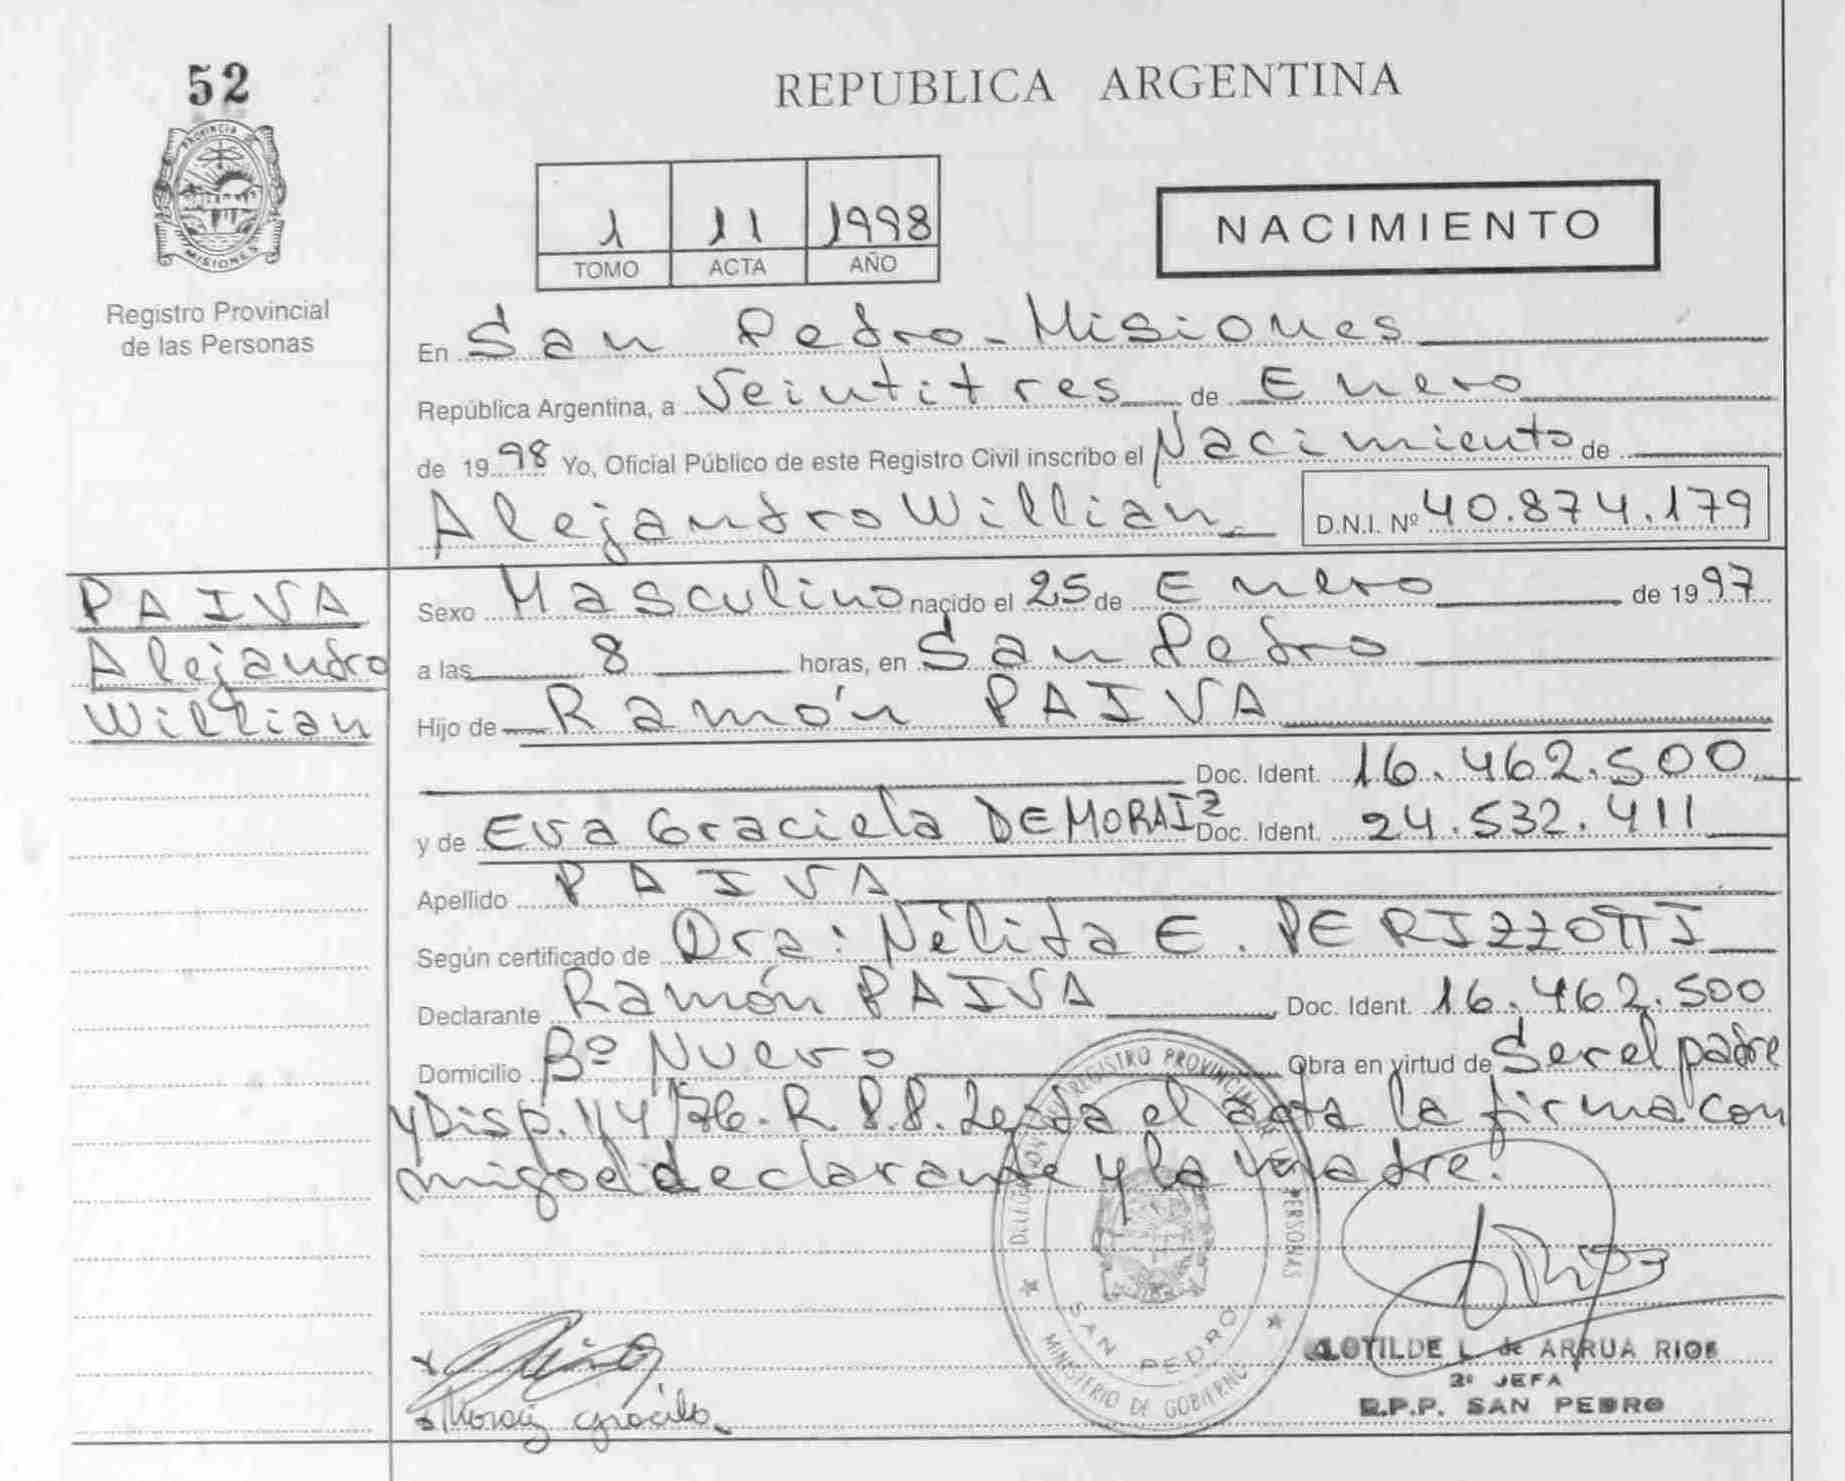 52
PROVINCIA
MISIONES
Registro Provincial
de las Personas
REPUBLICA ARGENTINA
1 11 1998
TOMO ACTA AÑO
NACIMIENTO
En San Pedro-Misiones
República Argentina, a Veintitres de Enero
de 1998 Yo, Oficial Público de este Registro Civil inscribo el Nacimiento de
Alejandro Willian D.N.I. Nº 40.874.179
PAIVA
Alejandro
Willian
Sexo Masculino nacido el 25 de Enero de 1997
a las 8 horas, en San Pedro
Hijo de Ramón PAIVA
Doc. Ident. 16.462.500
y de Eva Graciela DEMORAIZ Doc. Ident. 24.532.411
Apellido PAIVA
Según certificado de Dra: Nélida E. PERIZZOTTI
Declarante Ramón PAIVA Doc. Ident. 16.462.500
Domicilio Bº Nuevo Obra en virtud de Ser el padre
y Disp. 114/76. R.P.P. Leida el acta la firma con
migo el declarante y la madre.
REGISTRO PROVINCIAL DE LAS PERSONAS
SAN PEDRO
MINISTERIO DE GOBIERNO
Moraiz Graciela
CLOTILDE L. de ARRUA RIOS
2º JEFA
R.P.P. SAN PEDRO